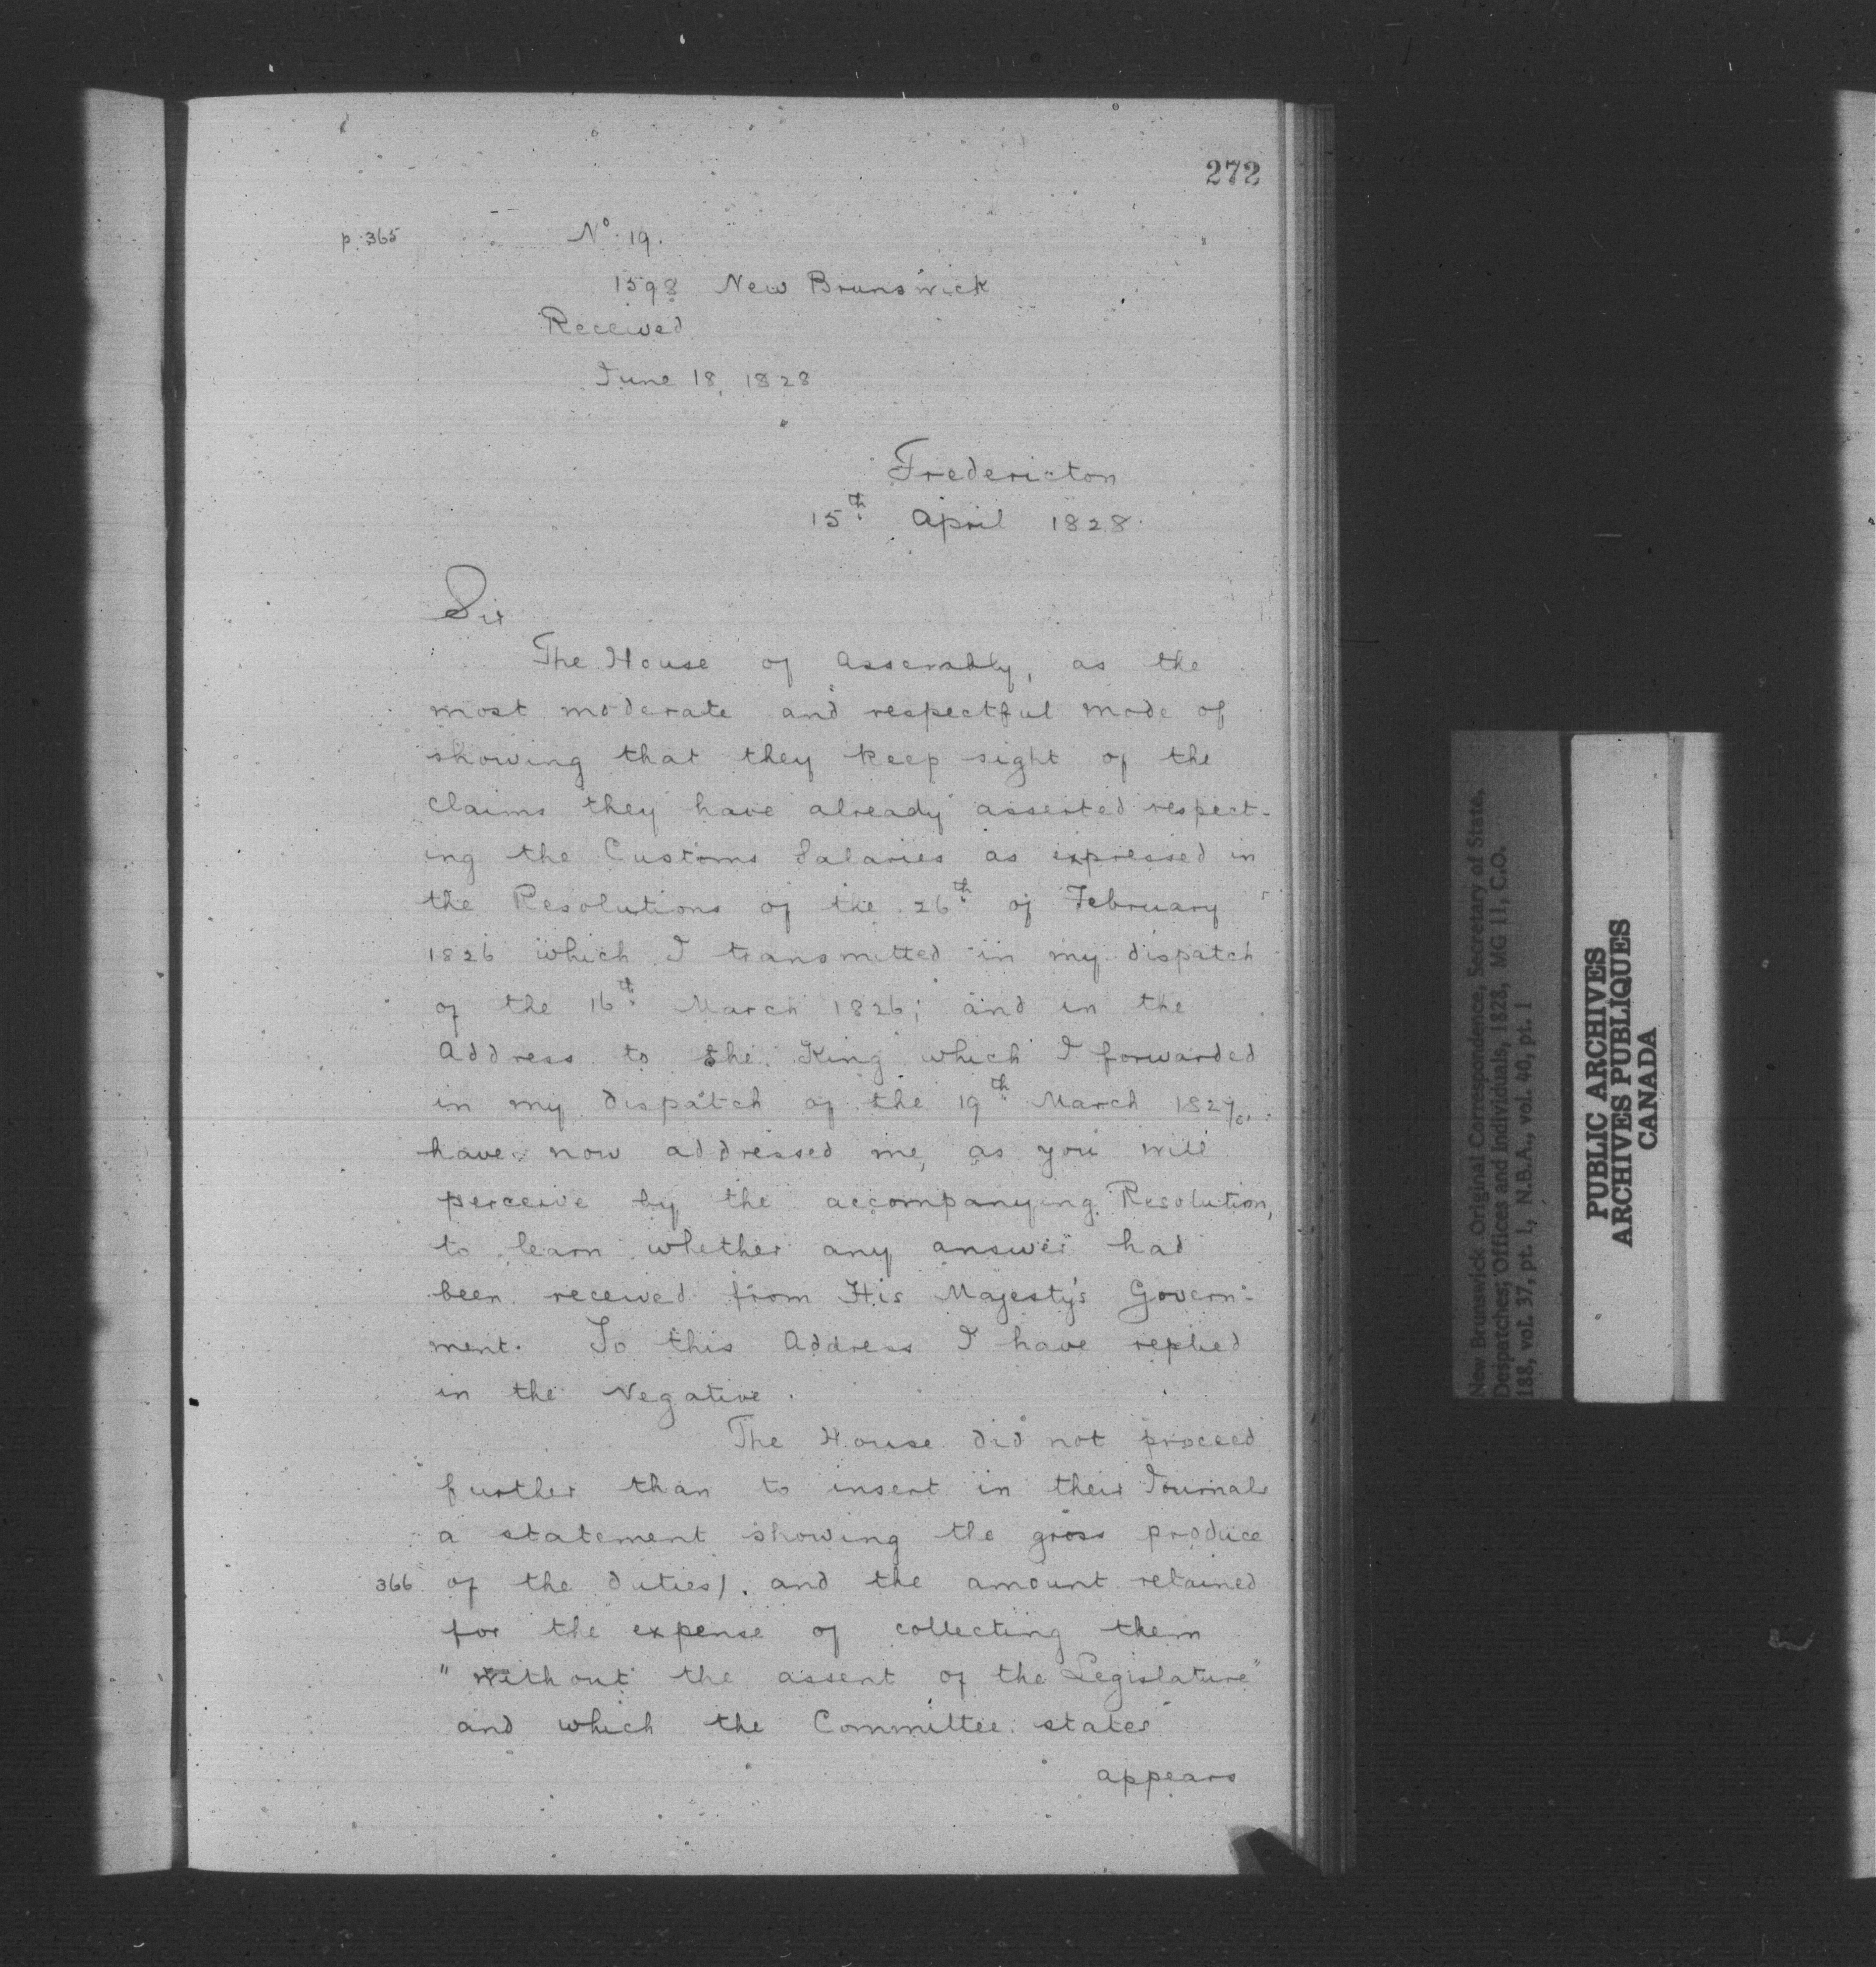 272
p. 365 No 19.
1598 New Brunswick
Received
June 18, 1828
Fredericton
15th April 1828.
Sir
The House of Assembly, as the
most moderate and respectful mode of
showing that they keep sight of the
claims they have already asserted respect-
ing the Customs Salaries as expressed in
the Resolutions of the 26th of February
1826 which I transmitted in my dispatch
of the 16th March 1826; and in the
Address to the King which I forwarded
in my dispatch of the 19th March 1827,
have now addressed me, as you will
perceive by the accompanying Resolution,
to learn whether any answer had
been received from His Majesty's Govern-
ment. To this Address I have replied
in the Negative.
The House did not proceed
further than to insert in their Journals
a statement showing the gross produce
366 of the duties/. and the amount retained
for the expense of collecting them
"without the assent of the Legislature"
and which the Committee states
appears
New Brunswick Original Correspondence, Secretary of State,
Despatches; Offices and Individuals, 1828, MG 11, C.O.
188, vol. 37, pt. 1, N.B.A., vol. 40, pt. 1
PUBLIC ARCHIVES
ARCHIVES PUBLIQUES
CANADA